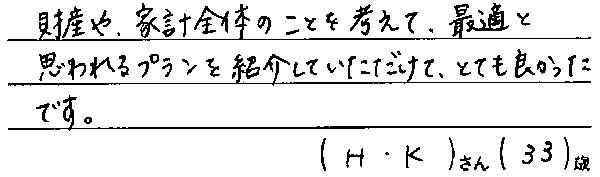 財産や、家計全体のことを考えて、最適と
思われるプランを紹介していただけて、とても良かった
です。
(H・K)さん(33)歳